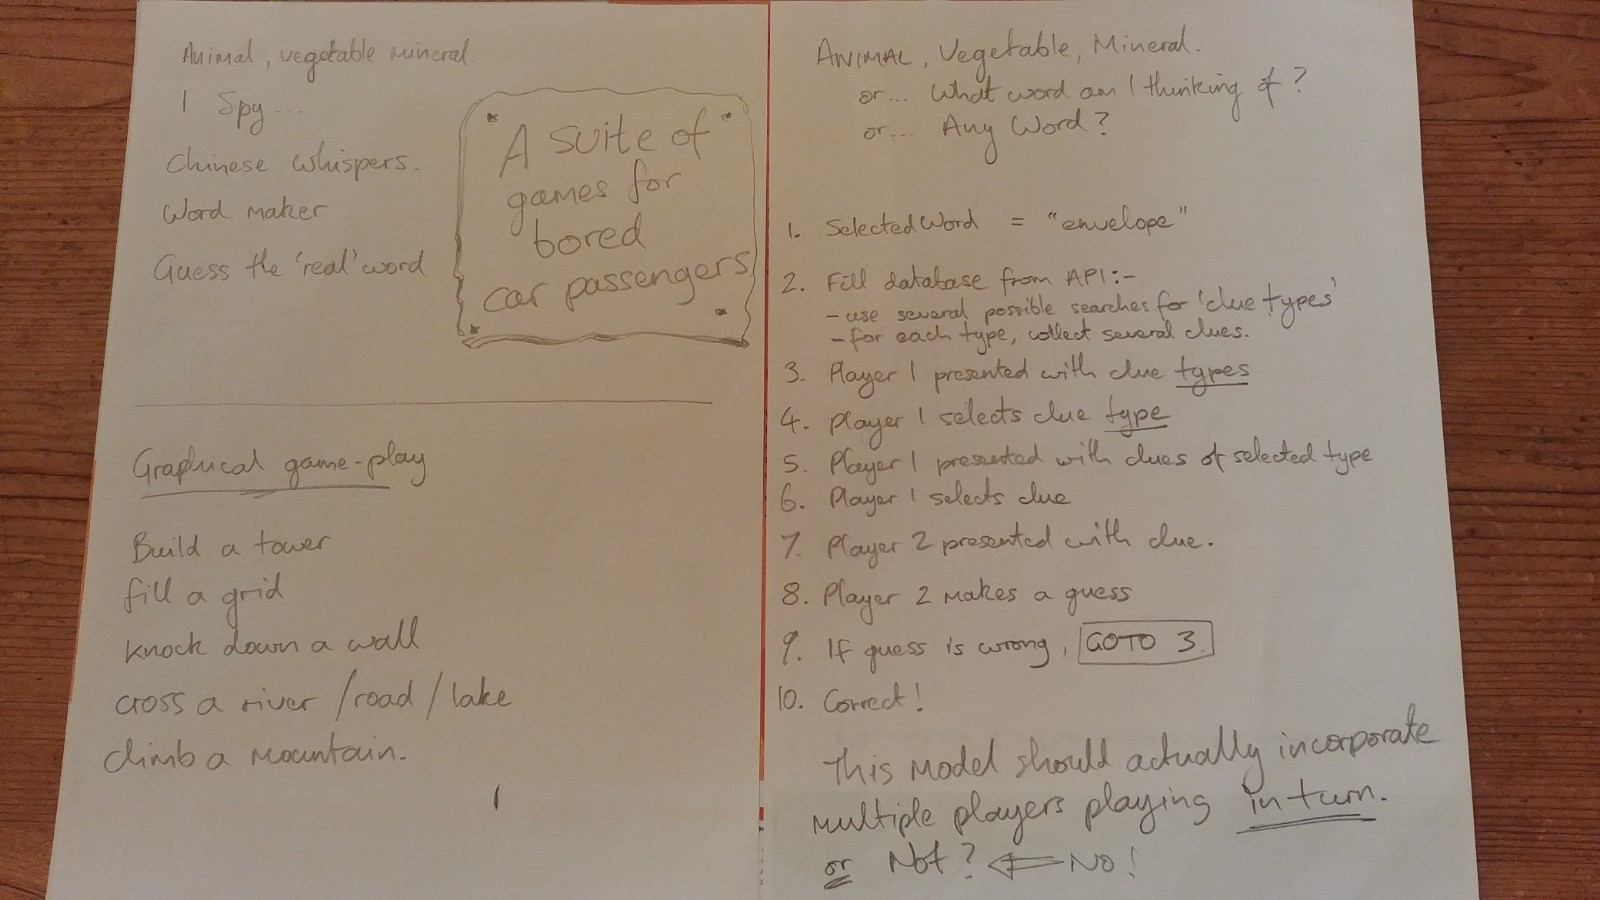 Animal, vegetable mineral.
I Spy...
Chinese whispers.
Word maker
Guess the 'real' word
A suite of
games for
bored
car passengers
Graphical game-play
Build a tower
fill a grid
knock down a wall
cross a river / road / lake
climb a mountain.
ANIMAL, Vegetable, Mineral.
or... What word am I thinking of?
or... Any Word?
1. Selected Word = "envelope"
2. Fill database from API:-
- use several possible searches for 'clue types'
- for each type, collect several clues.
3. Player 1 presented with clue types
4. player 1 selects clue type
5. Player 1 presented with clues of selected type
6. Player 1 selects clue
7. Player 2 presented with clue.
8. Player 2 makes a guess
9. If guess is wrong, GOTO 3.
10. Correct!
This model should actually incorporate
multiple players playing in turn.
or Not? ⇐ No!